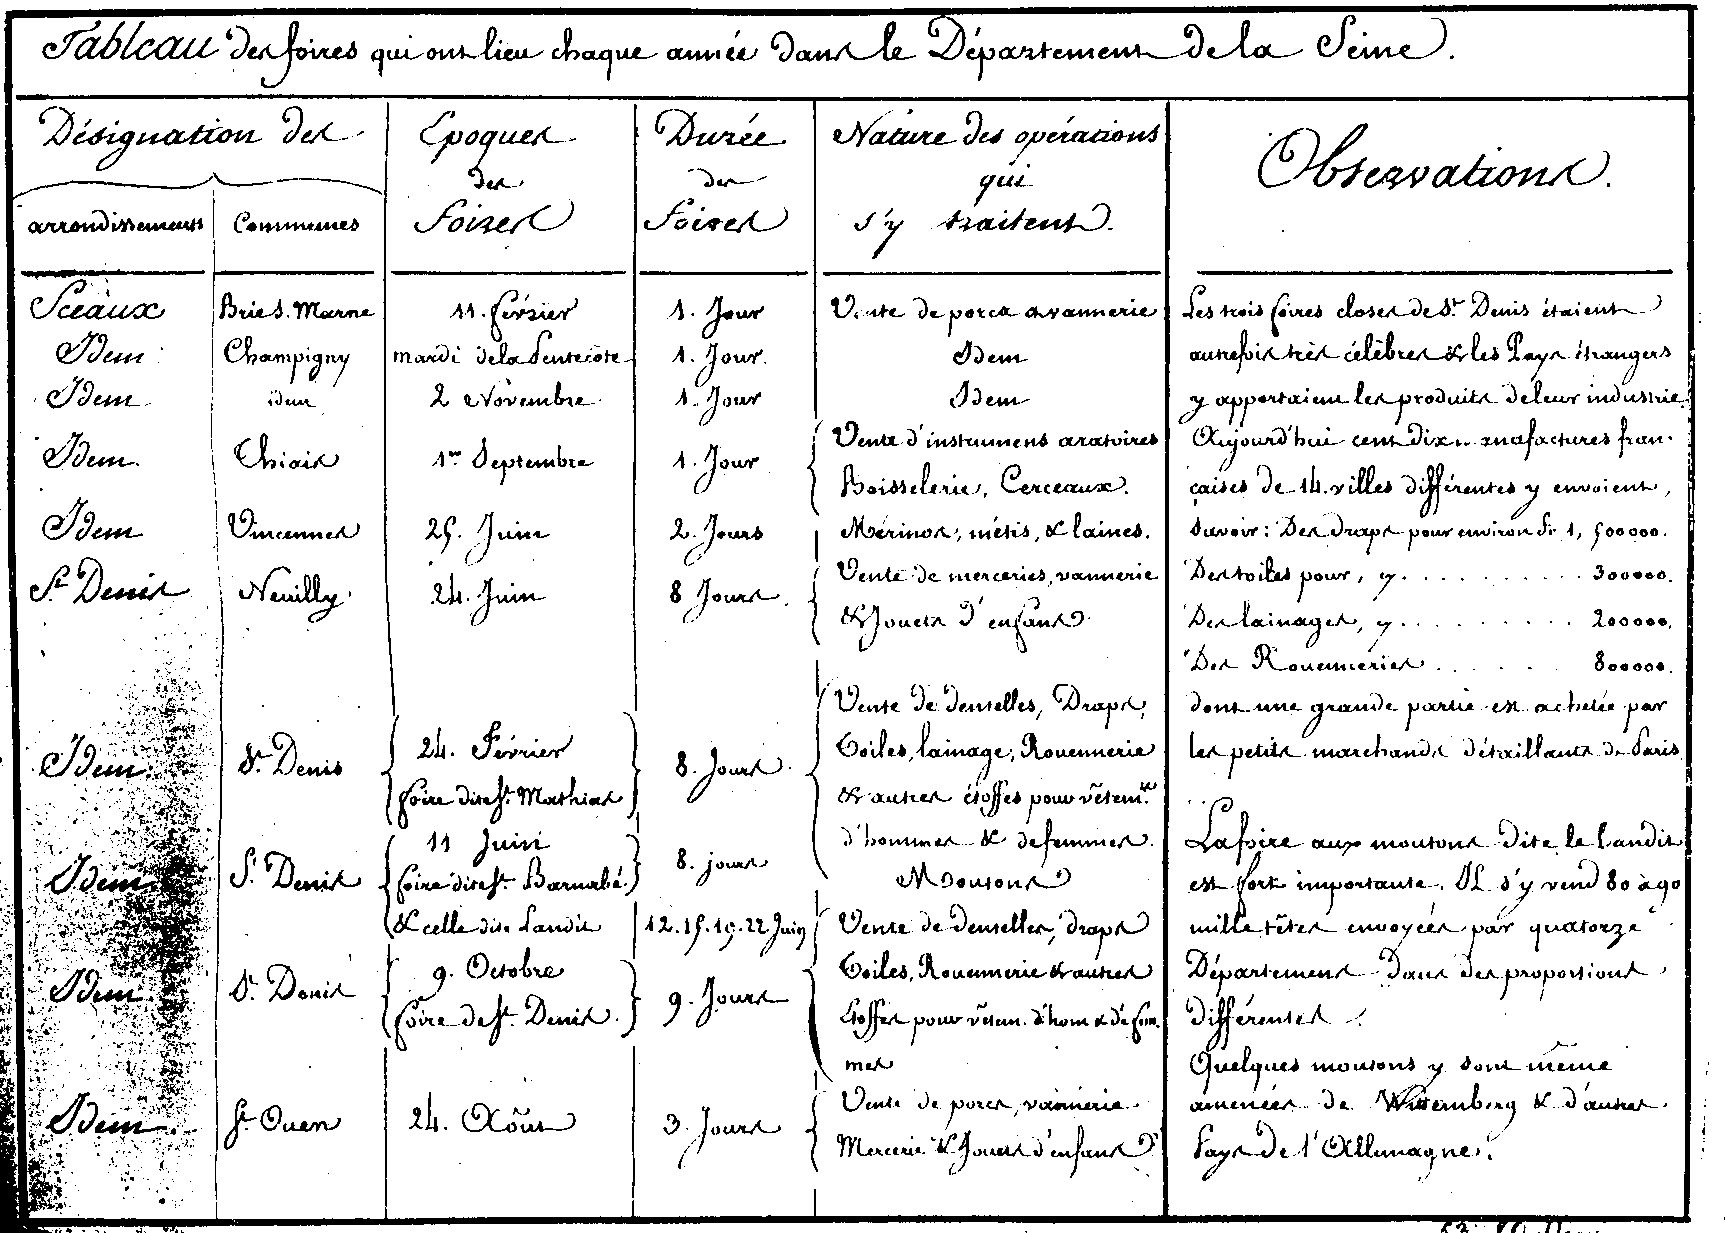 Tableau des foires qui ont lieu chaque année dans le Département de la Seine.
Désignation des
arrondissements
Communes
Epoques
des
foires
Durée
des
foires
Nature des opérations
qui
s'y traitent.
Observations.
Sceaux Brie s. Marne 11. février 1. Jour Vente de porcs & vannerie
Idem Champigny mardi de la Pentecôte 1. Jour. Idem
Idem idem 2 Novembre 1. Jour Idem
Idem. Thiais 1er Septembre 1. Jour
Vente d'instrumens aratoires
Boisselerie, Cerceaux.
Idem Vincennes 25. Juin 2. Jours Mérinos, métis, & laines.
St Denis Neuilly 24. Juin 8 Jours.
Vente de merceries, vannerie
& Jouets d'enfans
Idem. St Denis
24. Février
foire dite St. Mathias
8. Jours.
Vente de dentelles, Draps,
toiles, lainage, Rouennerie
& autres étoffes pour vêtemts
d'hommes & de femmes.
Idem St Denis
11 Juin
foire dite St. Barnabé.
& celle dite Landit
8. jours
12. 15. 19. 22 Juin
Moutons
Idem St Denis
9. Octobre
foire de St. Denis.
9. Jours
Vente de dentelles, draps
toiles, Rouennerie & autres
étoffes pour vêtem. d'hom & de fem.
mes
Idem St Ouen 24. Août 3. Jours
Vente de porcs, vannerie
Mercerie & Jouets d'enfans
Les trois foires closes de St Denis étaient
autrefois très célèbres & les Pays étrangers
y apportaient les produits de leur industrie.
Aujourd'hui cent dix manafactures fran.
çaises de 14. villes différentes y envoient,
savoir: Des draps pour environ fr 1, 500000.
Des toiles pour, y. . . . . . . . . . . 300000.
Des lainages, y. . . . . . . . . . 200000.
Des Rouenneries . . . . . . 800000.
dont une grande partie est achetée par
les petits marchands détaillants de Paris
La foire aux moutons dite le Landit
est fort importante. Il s'y vend 80 à 90
mille têtes envoyées par quatorze
Départemens dans des proportions
différentes.
Quelques moutons y sont même
amenées de Wittemberg & d'autres
Pays de l'Allemagne.